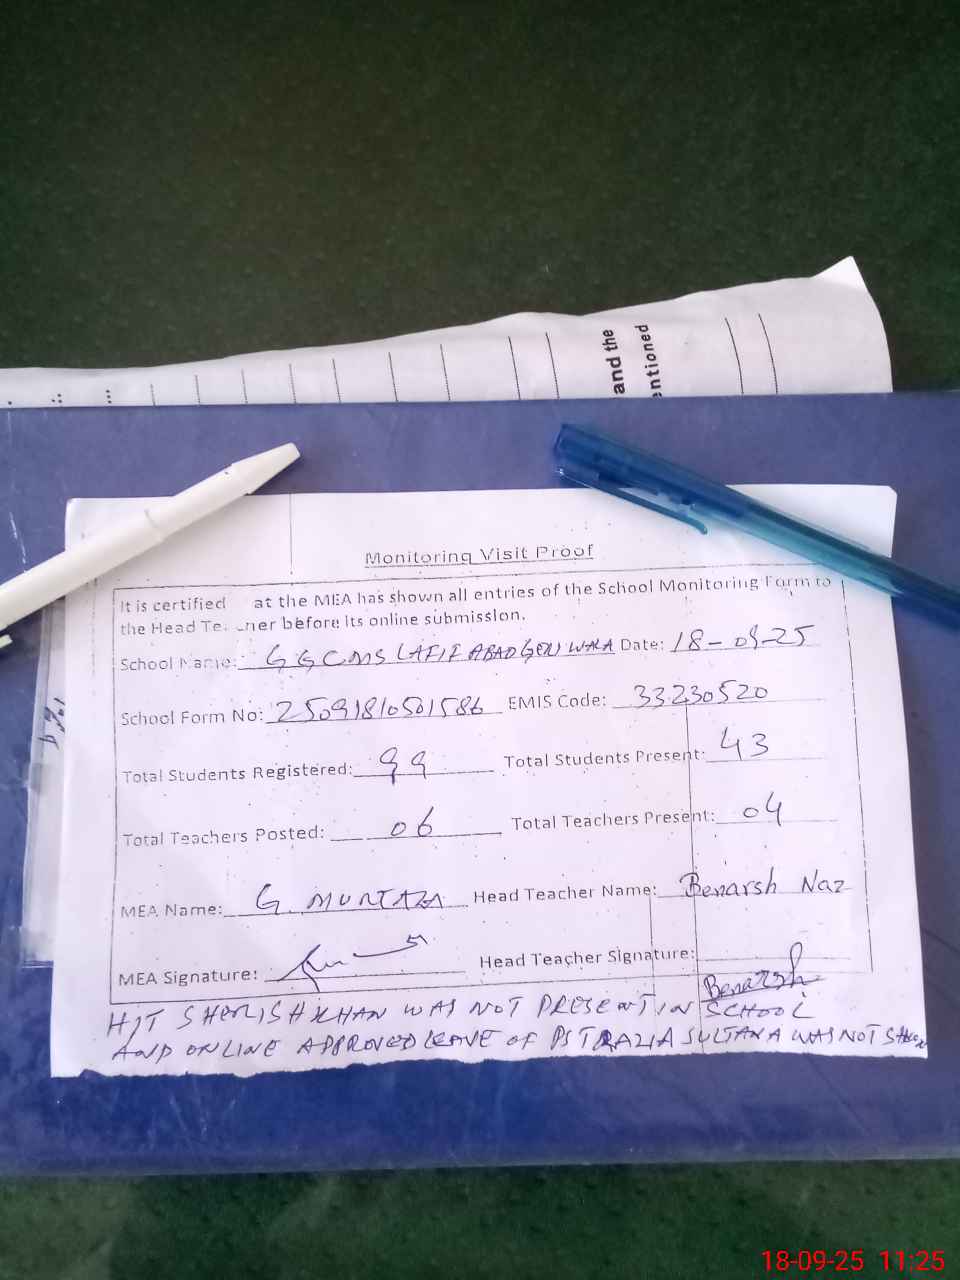 and the
entioned
Monitoring Visit Proof
It is certified at the MEA has shown all entries of the School Monitoring Form to
the Head Te. ner before its online submission.
School Name: GGCMS LATIF ABAD Date: 18-09-25
School Form No: 25091810501586 EMIS Code: 33230520
Total Students Registered: 99 Total Students Present: 43
Total Teachers Posted: 06 Total Teachers Present: 04
MEA Name: G. MURTAZA Head Teacher Name: Benarsh Naz
MEA Signature: Head Teacher Signature:
Benarsh
WAS NOT PRESENT IN SCHOOL
AND ONLINE APPROVED LEAVE OF PST RAZIA SULTANA WAS NOT
18-09-25 11:25